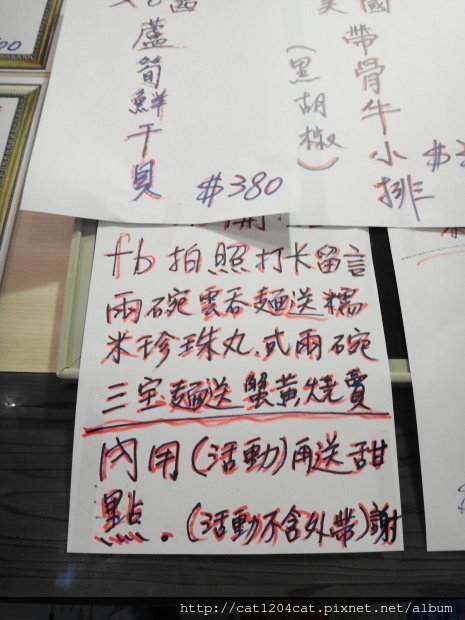 蘆筍鮮干貝
$380
國帶骨牛小排
(黑胡椒)
fb拍照打卡留言
兩碗雲吞麵送糯
米珍珠丸.或兩碗
三宝麵送蟹黃燒賣
內用(活動)再送甜
點.(活動不含外帶)謝
http://cat1204cat.pixnet.net/album